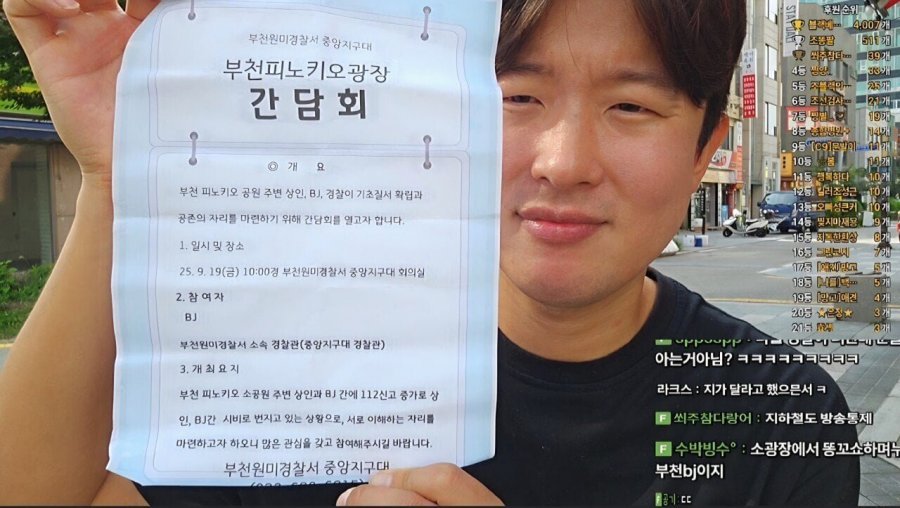 부천원미경찰서 중앙지구대
부천피노키오광장
간담회
◎ 개 요
부천 피노키오 공원 주변 상인, BJ, 경찰이 기초질서 확립과
공존의 자리를 마련하기 위해 간담회를 열고자 합니다.
1. 일시 및 장소
25. 9. 19(금) 10:00경 부천원미경찰서 중앙지구대 회의실
2. 참여자
BJ
부천원미경찰서 소속 경찰관(중앙지구대 경찰관)
3. 개최요지
부천 피노키오 소공원 주변 상인과 BJ 간에 112신고 증가로 상
인, BJ간 시비로 번지고 있는 상황으로, 서로 이해하는 자리를
마련하고자 하오니 많은 관심을 갖고 참여해주시길 바랍니다.
부천원미경찰서 중앙지구대
후원 순위
블랙베… 4,007개
조똥팔 511개
쐬주참다… 39개
4등 33개
5등 25개
6등 조선검사… 21개
7등 19개
8등 14개
9등 11개
10등 봄 11개
11등 행복하다 10개
12등 킬러조성근 10개
13등 오빠성큰키 10개
14등 9개
15등 8개
16등 7개
17등 5개
18등 5개
19등 4개
20등 3개
21등 3개
START
아는거아님? ㅋㅋㅋㅋㅋㅋㅋㅋㅋ
라크스 : 지가 달라고 했으믄서 ㅋ
F 쐬주참다랑어 : 지하철도 방송통제
F 수박빙수° : 소광장에서 똥꼬쇼하며누
부천bj이지
F 공기 : ㄷㄷ